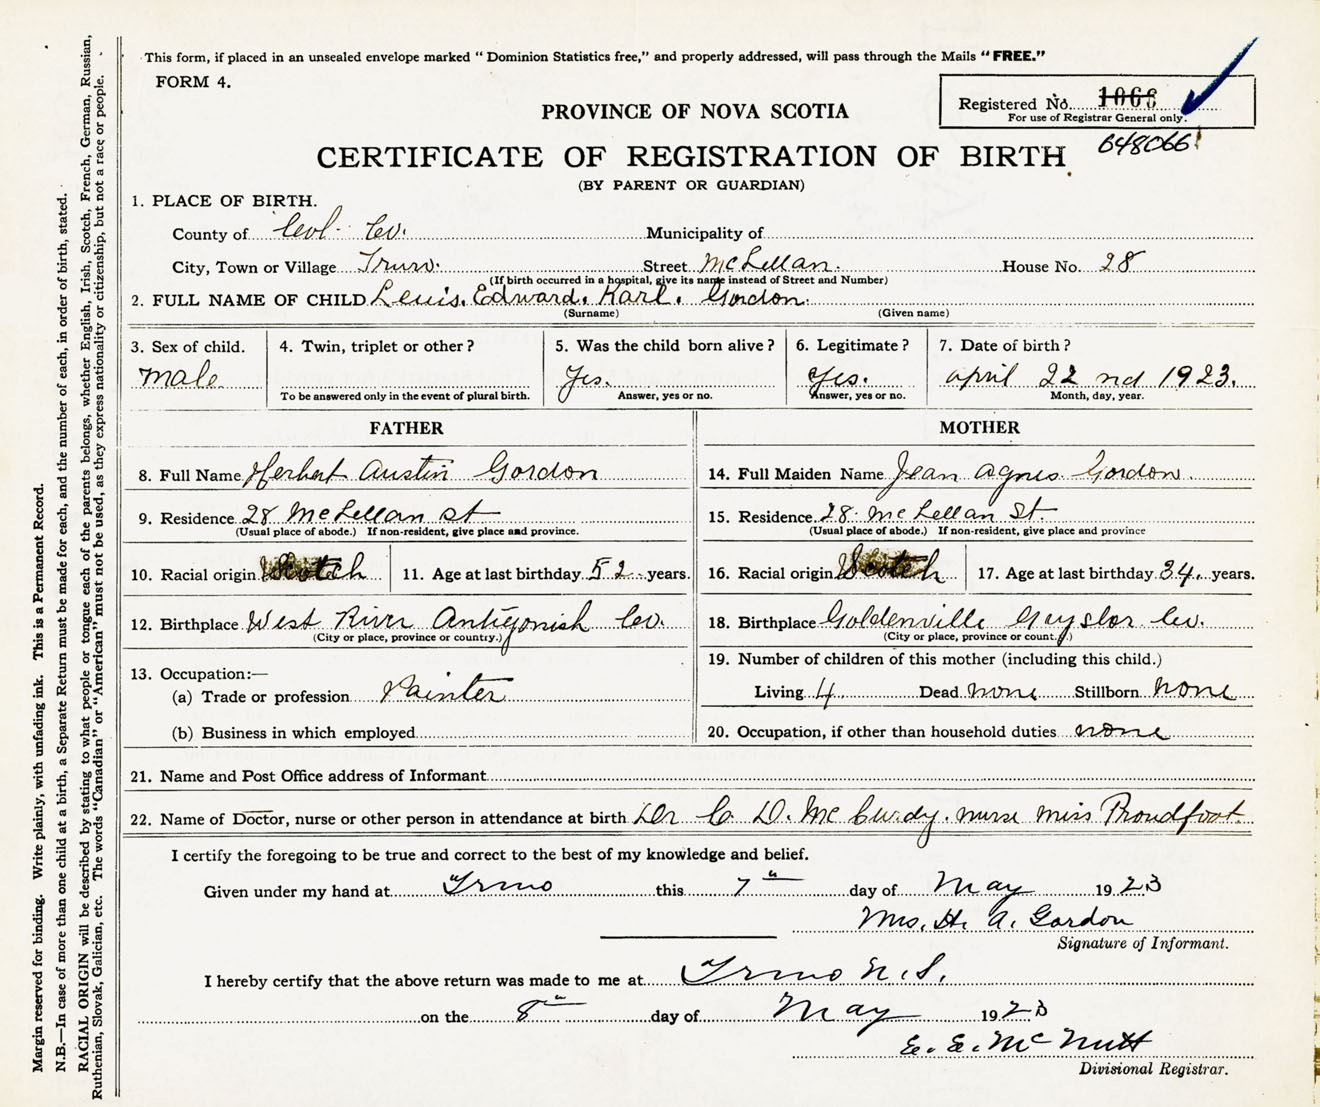 This form, if placed in an unsealed envelope marked “ Dominion Statistics free,” and properly addressed, will pass through the Mails “ FREE.”
FORM 4.
Registered No. 1066
For use of Registrar General only.
648066
PROVINCE OF NOVA SCOTIA
CERTIFICATE OF REGISTRATION OF BIRTH
(BY PARENT OR GUARDIAN)
1. PLACE OF BIRTH.
County of Col. Co. Municipality of
City, Town or Village Truro. Street McLellan. House No. 28
(If birth occurred in a hospital, give its name instead of Street and Number)
2. FULL NAME OF CHILD Lewis. Edward. Karl. Gordon.
(Surname) (Given name)
3. Sex of child. 4. Twin, triplet or other ? 5. Was the child born alive ? 6. Legitimate ? 7. Date of birth ?
male Yes. Yes. april 22 nd 1923.
To be answered only in the event of plural birth. Answer, yes or no. Answer, yes or no. Month, day, year.
FATHER MOTHER
8. Full Name Herbert Austin Gordon 14. Full Maiden Name Jean Agnes Gordon.
9. Residence 28 McLellan St 15. Residence 28. McLellan St.
(Usual place of abode.) If non-resident, give place and province. (Usual place of abode.) If non-resident, give place and province
10. Racial origin Scotch 11. Age at last birthday 52 years. 16. Racial origin Scotch 17. Age at last birthday 34. years.
12. Birthplace West River Antigonish Co. 18. Birthplace Goldenville Gaysbor Co.
(City or place, province or country.) (City or place, province or count.y.)
19. Number of children of this mother (including this child.)
13. Occupation:—
(a) Trade or profession Painter Living 4 Dead none Stillborn none
(b) Business in which employed 20. Occupation, if other than household duties none
21. Name and Post Office address of Informant
22. Name of Doctor, nurse or other person in attendance at birth Dr C. D. McCurdy. nurse miss Proudfoot.
I certify the foregoing to be true and correct to the best of my knowledge and belief.
Given under my hand at Truro this 7th day of May 1923
Mrs. H. A. Gordon
Signature of Informant.
I hereby certify that the above return was made to me at Truro N.S.
on the 8th day of May 1923
E. E. McNutt
Divisional Registrar.
Margin reserved for binding. Write plainly, with unfading ink. This is a Permanent Record.
N.B.—In case of more than one child at a birth, a Separate Return must be made for each, and the number of each, in order of birth, stated.
RACIAL ORIGIN will be described by stating to what people or tongue each of the parents belongs, whether English, Irish, Scotch, French, German, Russian,
Ruthenian, Slovak, Galician, etc. The words “Canadian” or “American” must not be used, as they express nationality or citizenship, but not a race or people.